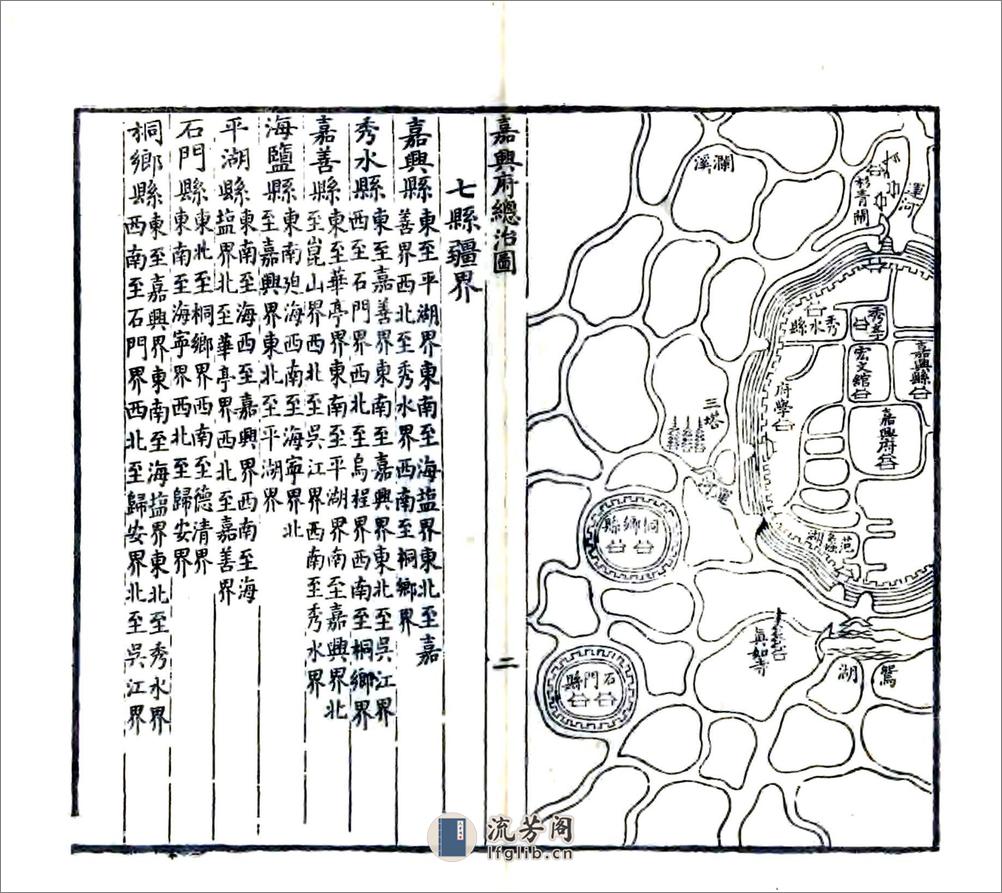 運河
杉青閘
瀾溪
秀水縣
嘉興縣
宏文館
府學
嘉興府
三塔
運河
桐鄉縣
范蠡湖
真如寺
鴛湖
石門縣
嘉興府總治圖
二
七縣疆界
嘉興縣東至平湖界東南至海盐界東北至嘉
善界西北至秀水界西南至桐鄉界
秀水縣東至嘉善界東南至嘉興界東北至吳江界
西至石門界西北至烏程界西南至桐鄉界
嘉善縣東至華亭界東南至平湖界南至嘉興界北
至崑山界西北至吳江界西南至秀水界
海鹽縣東南廹海西南至海寧界北
至嘉興界東北至平湖界
平湖縣東南至海西至嘉興界西南至海
盐界北至華亭界西北至嘉善界
石門縣東北至桐鄉界西南至德清界
東南至海寧界西北至歸安界
桐鄉縣東至嘉興界東南至海盐界東北至秀水界
西南至石門界西北至歸安界北至吳江界
流芳阁
lfglib.cn